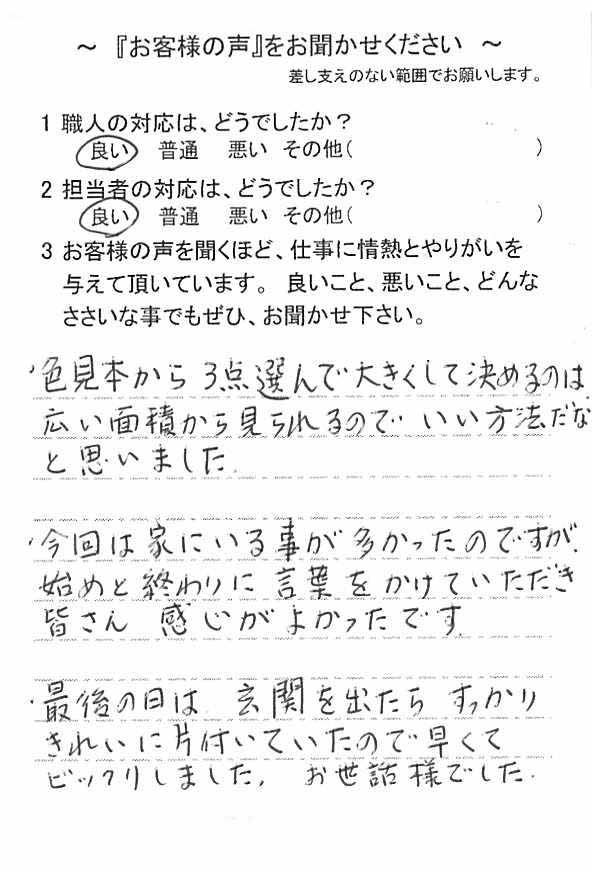 ～ 『お客様の声』をお聞かせください ～
差し支えのない範囲でお願いします。
1 職人の対応は、どうでしたか？
良い 普通 悪い その他( )
2 担当者の対応は、どうでしたか？
良い 普通 悪い その他( )
3 お客様の声を聞くほど、仕事に情熱とやりがいを
与えて頂いています。 良いこと、悪いこと、どんな
ささいな事でもぜひ、お聞かせ下さい。
・色見本から3点選んで大きくして決めるのは、
広い面積から見られるので いい方法だな
と思いました。
・今回は家にいる事が多かったのですが、
始めと終わりに言葉をかけていただき
皆さん 感じがよかったです。
・最後の日は 玄関を出たら すっかり
きれいに片付いていたので早くて
ビックリしました。 お世話様でした。